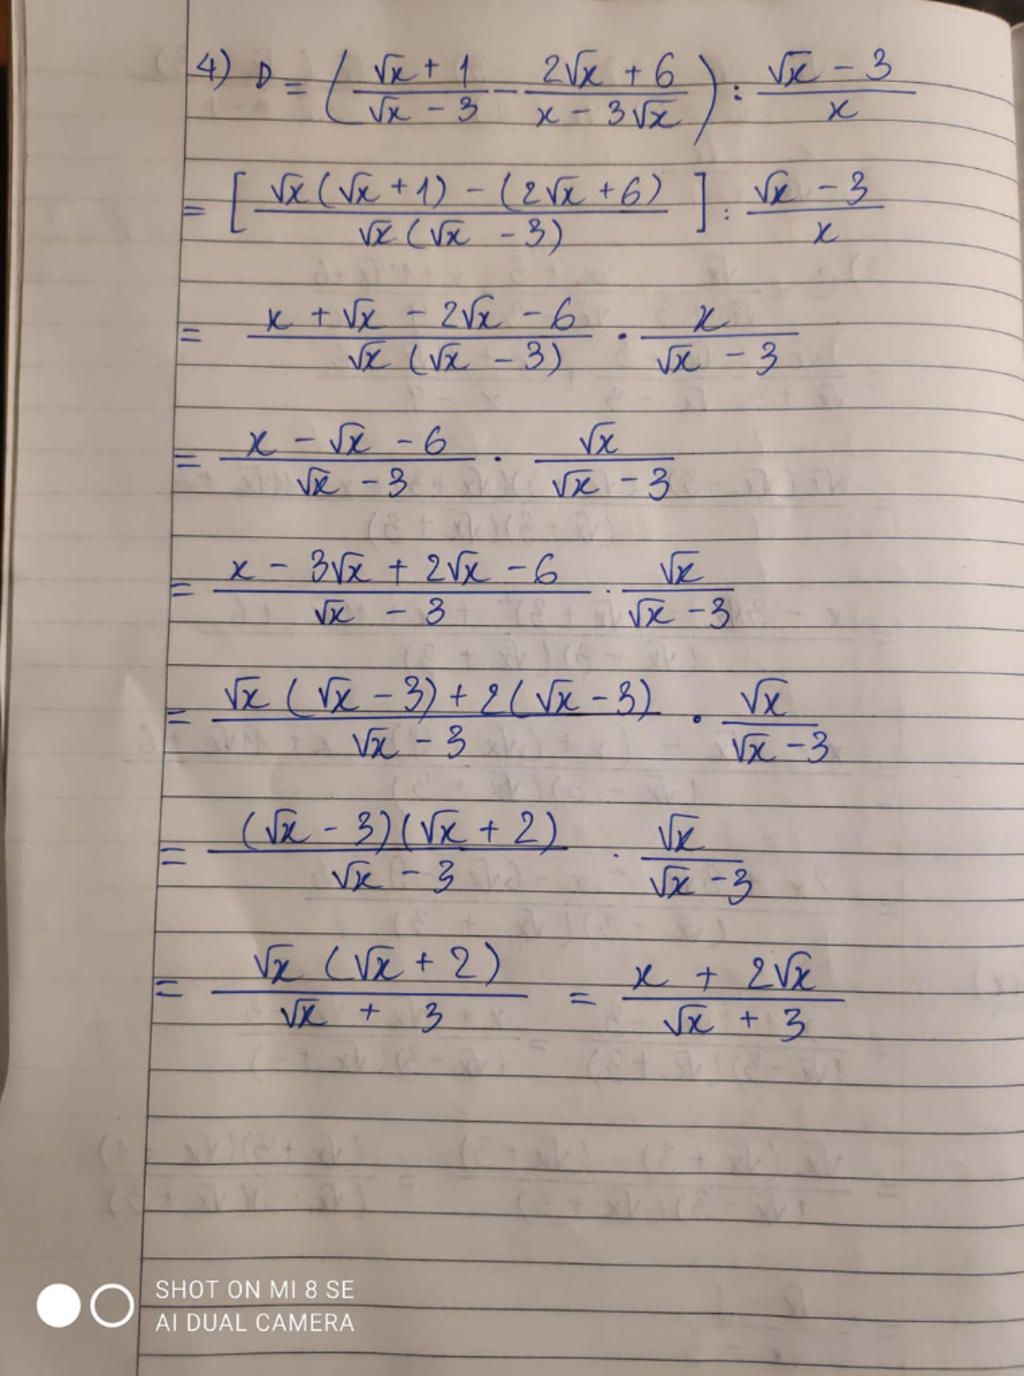 4) D = ( (√x + 1)/(√x - 3) - (2√x + 6)/(x - 3√x) ) : (√x - 3)/x
= [ (√x (√x + 1) - (2√x + 6))/(√x (√x - 3)) ] : (√x - 3)/x
= (x + √x - 2√x - 6)/(√x (√x - 3)) · x/(√x - 3)
= (x - √x - 6)/(√x - 3) · √x/(√x - 3)
= (x - 3√x + 2√x - 6)/(√x - 3) · √x/(√x - 3)
= (√x (√x - 3) + 2(√x - 3))/(√x - 3) · √x/(√x - 3)
= ((√x - 3)(√x + 2))/(√x - 3) · √x/(√x - 3)
= (√x (√x + 2))/(√x + 3) = (x + 2√x)/(√x + 3)
SHOT ON MI 8 SE
AI DUAL CAMERA